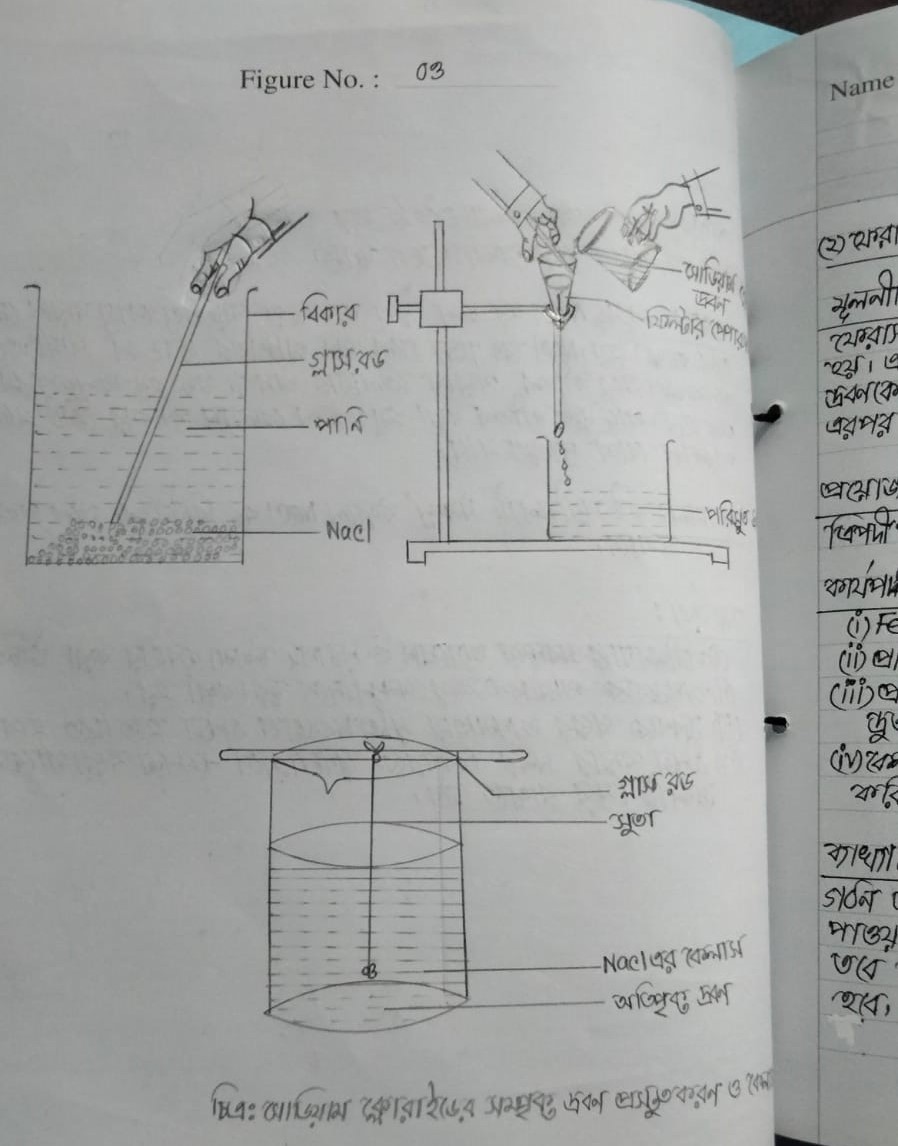 Figure No. : 03
বিকার
গ্লাস রড
পানি
NaCl
সোডিয়াম
দ্রবণ
ফিল্টার পেপার
পরিস্রুত
গ্লাস রড
সুতা
NaCl এর কেলাস
অতিপৃক্ত দ্রবণ
চিত্র: সোডিয়াম ক্লোরাইডের সম্পৃক্ত দ্রবণ প্রস্তুতকরণ ও
Name
(২) ফেরা
মূলনী
ফেরাস
হয়। এ
দ্রবণকে
এরপর
প্রয়োজ
ত্রিপদী
কার্যপ
(i) Fe
(ii) প্র
(iii) প্র
(iv) কেল
করি
ব্যাখ্যা
গঠন
পাওয়
তবে
হবে,